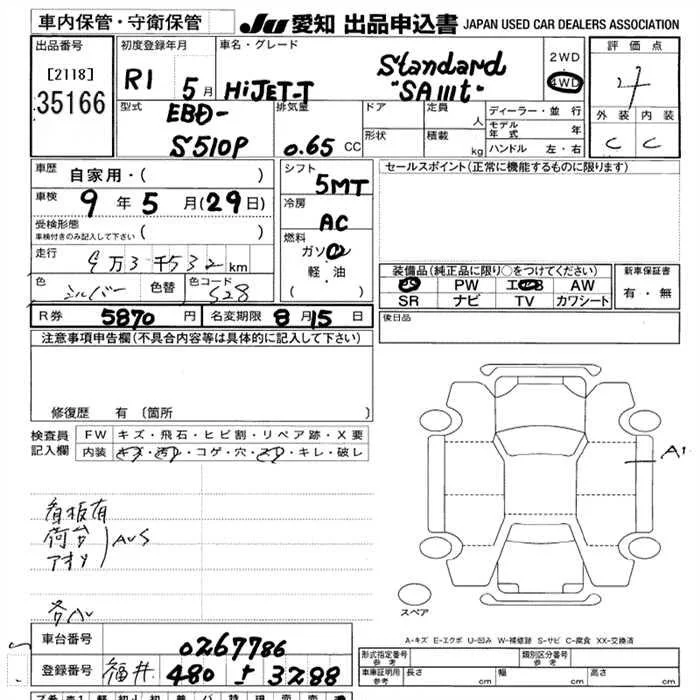 車内保管・守衛保管
JU 愛知 出品申込書 JAPAN USED CAR DEALERS ASSOCIATION
出品番号
[2118]
35166
初度登録年月
R1 5月
車名・グレード
HiJET-T Standard
"SAIIIt"
2WD
4WD
評価点
外装 内装
C C
型式
EBD-
S510P
排気量
0.65 CC
ドア
形状
定員 人
積載 kg
ディーラー・並行
モデル年式 年
ハンドル 左・右
車歴
自家用・( )
車検
9年5月(29日)
受検形態
車検付きのみ記入して下さい ( )
走行
9万3千532km
色
シルバー
色替
色コード
S28
シフト
5MT
冷房
AC
燃料
ガソ
軽・油
( )
セールスポイント(正常に機能するものに限ります)
装備品(純正品に限り○をつけてください)
PS PW エアB AW
SR ナビ TV カワシート
新車保証書
有・無
R券 5870円 名変期限 8月15日
後日品
注意事項申告欄(不具合内容等は具体的に記入して下さい)
修復歴 有 〔箇所 〕
検査員記入欄
FW キズ・飛石・ヒビ割・リペア跡・X要
内装 キズ・汚レ・コゲ・穴・スレ・キレ・破レ
看板有
荷台
アオリ
AUS
各ハ
A1
スペア
A-キズ E-エクボ U-凹み W-補修跡 S-サビ C-腐食 XX-交換済
車台番号 0267786
登録番号 福井 480 3288
形式指定番号 参考
類別区分番号 参考
車庫証明用参考 長さ cm 幅 cm 高さ cm